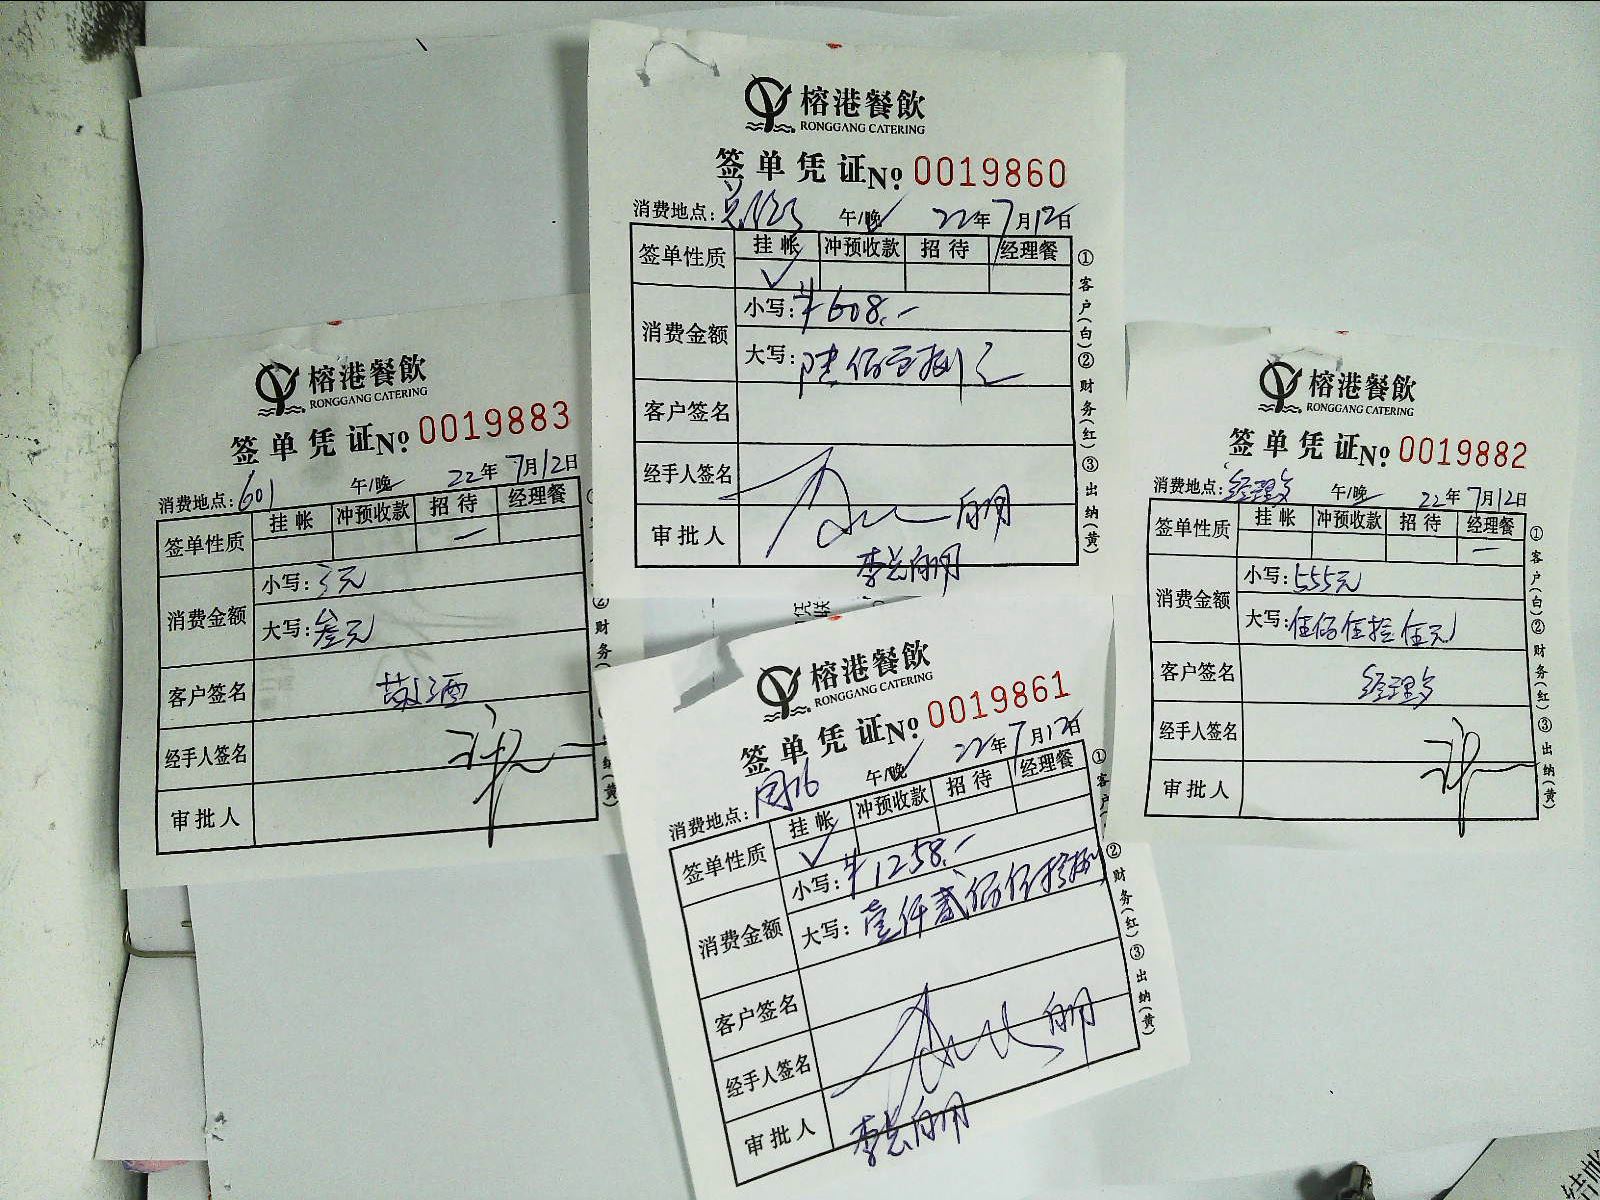 榕港餐飲
RONGGANG CATERING
签单凭证No. 0019860
消费地点: 午/晚 22年7月12日
签单性质 挂帐 冲预收款 招待 经理餐
✓
消费金额 小写: ¥608.-
大写: 陆佰零捌元
客户签名
经手人签名
审批人
李总朋
①客户(白)②财务(红)③出纳(黄)
榕港餐飲
RONGGANG CATERING
签单凭证No. 0019883
消费地点: 601 午/晚 22年7月12日
签单性质 挂帐 冲预收款 招待 经理餐
消费金额 小写: 3元
大写: 叁元
客户签名 敬酒
经手人签名
审批人
②财务
(黄)
榕港餐飲
RONGGANG CATERING
签单凭证No. 0019882
消费地点: 午/晚 22年7月12日
签单性质 挂帐 冲预收款 招待 经理餐
消费金额 小写: 555元
大写: 伍佰伍拾伍元
客户签名
经手人签名
审批人
①客户(白)②财务(红)③出纳(黄)
榕港餐飲
RONGGANG CATERING
签单凭证No. 0019861
消费地点: 午/晚 22年7月12日
签单性质 挂帐 冲预收款 招待 经理餐
✓
消费金额 小写: ¥1258.-
大写: 壹仟贰佰伍拾捌
客户签名
经手人签名
审批人
李总朋
①客户
②财务(红)③出纳(黄)